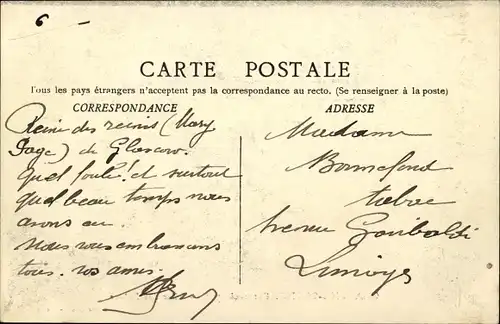 6 -
CARTE POSTALE
Tous les pays étrangers n'acceptent pas la correspondance au recto. (Se renseigner à la poste)
CORRESPONDANCE
Reine des reines (Mary
Page) de Glascow.
Quel foule! et surtout
quel beau temps nous
avons eu.
Nous vous embrassons
tous. vos amis.
ADRESSE
Madame
Bonnefond
tabac
Avenue Garibaldi
Limoges